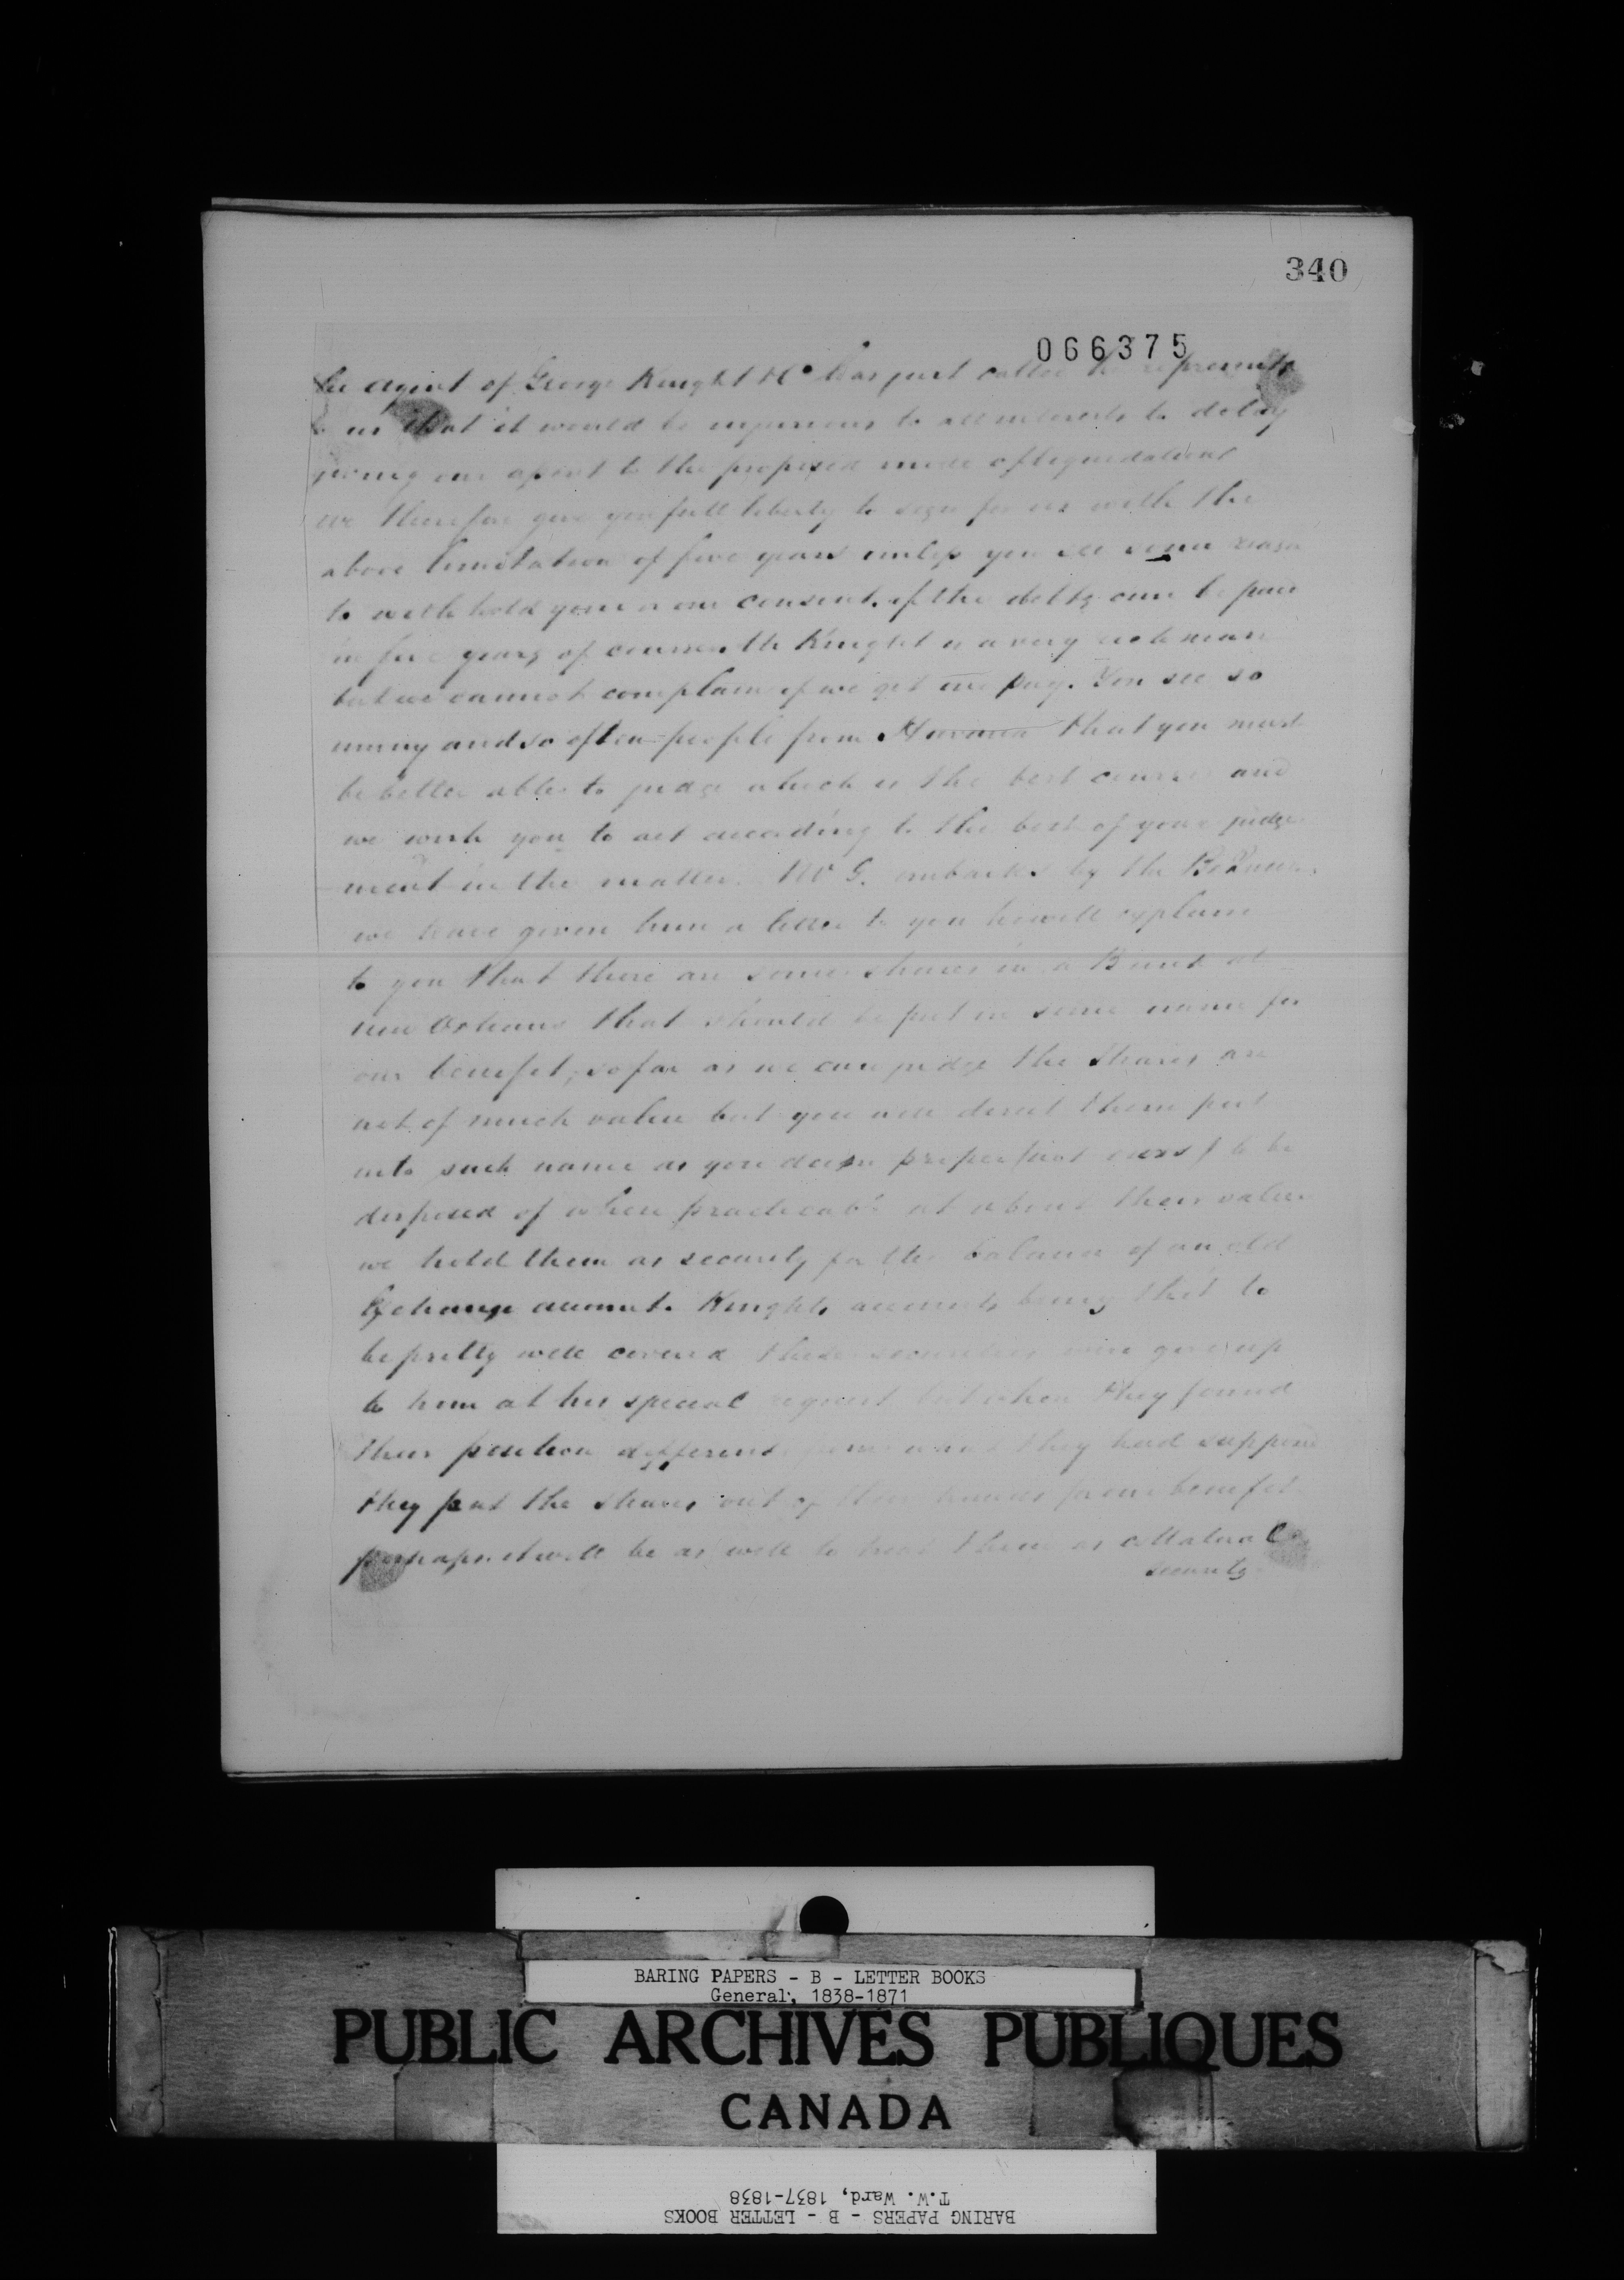 340
066375
the agent of George Knight & Co has just called he represents
to us that it would be injurious to all interests to delay
giving our assent to the proposed mode of liquidation
we therefore give you full liberty to sign for us with the
above limitation of five years unless you see some reason
to withhold your or our consent. if the debts can be paid
in five years of course Mr Knight is a very rich man
but we cannot complain if we get our pay. You see so
many and so often people from Havana that you must
be better able to judge which is the best course and
we wish you to act according to the best of your judge
ment in the matter. Mr G. embarks by the
we have given him a letter to you he will explain
to you that there are some shares in a Bank at
New Orleans that should be put in some name for
our benefit, so far as we can judge the shares are
not of much value but you will direct them put
into such name as you deem proper (not ours) to be
disposed of when practicable at about their value
we hold them as security for the balance of an old
Exchange account. Knights accounts being tho't to
be pretty well covered these securities were given up
to him at his special request but when they found
their position different from what they had supposed
they put the shares out of their names for our benefit
perhaps it will be as well to treat them as collateral
security
BARING PAPERS - B - LETTER BOOKS
General, 1838-1871
PUBLIC ARCHIVES PUBLIQUES
CANADA
BARING PAPERS - B - LETTER BOOKS
T.W. Ward, 1837-1838